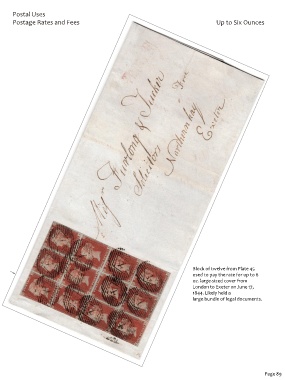 Postal Uses
Postage Rates and Fees
Up to Six Ounces
Mess Furlong & Tucker
Solicitors
Northernhay
Exeter
Block of twelve from Plate 45
used to pay the rate for up to 6
oz. large sized cover from
London to Exeter on June 17,
1844. Likely held a
large bundle of legal documents.
Page 89